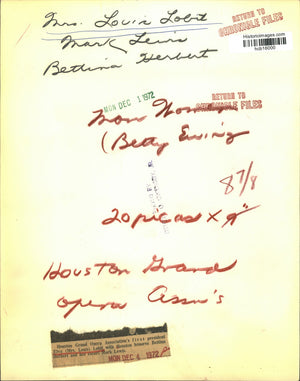 Mrs. Louis Lobit
Mark Lewis
Bettina Herbert
RETURN TO
CHRONICLE FILES
Historicimages.com
MON DEC 1972
RETURN TO
CHRONICLE FILES
Mon
(Betty Ewing
8 7/8
20 picas x 9"
Houston Grand
Opera Assn's
Houston Grand Opera Association's first president
MON DEC 4 1972